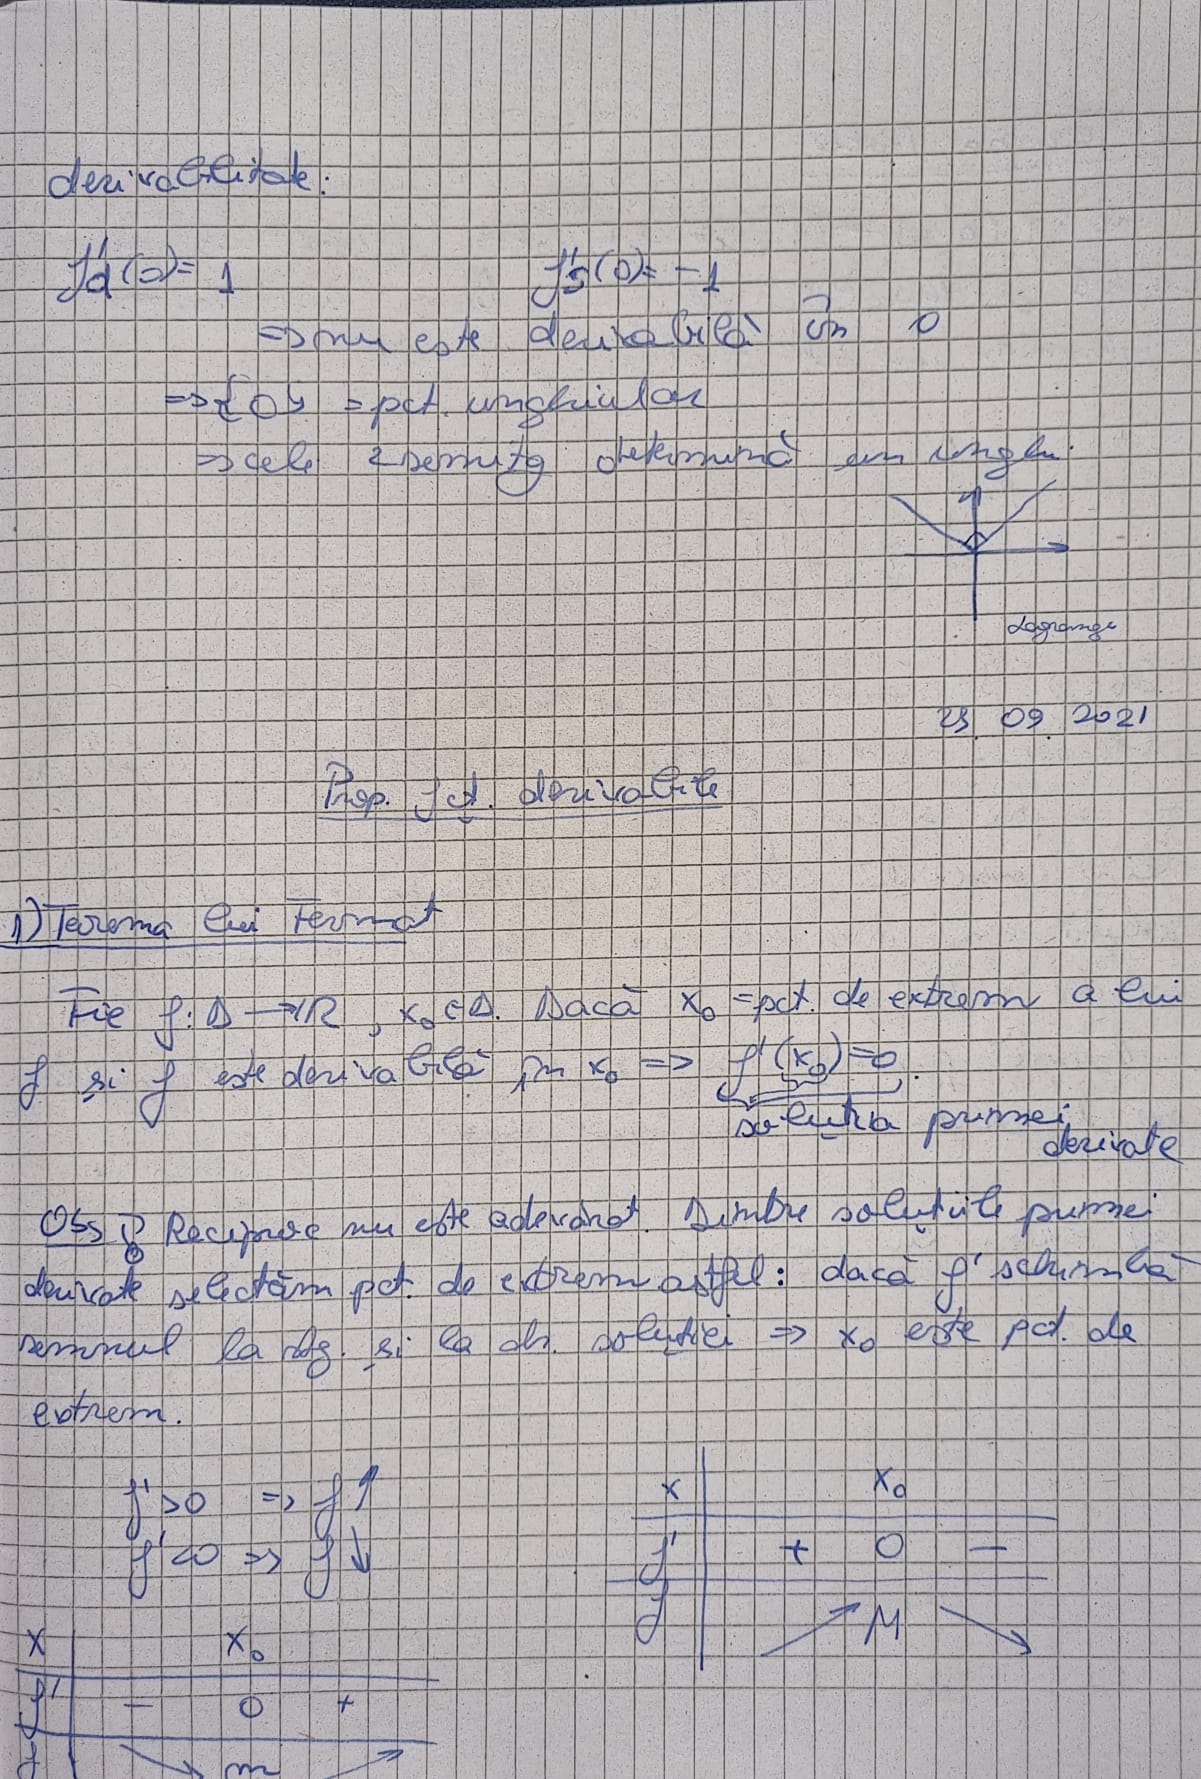 derivabilitate:
f'd(0)= 1 f's(0)= -1
=> nu este derivabilă în 0
=> {0} = pct. unghiular
=> cele 2 semitg determină un unghi.
Lagrange
09. 2021
Prop. fcț. derivabile
1) Teorema lui Fermat
Fie f: D → ℝ, x₀ ∈ D. Dacă x₀ = pct. de extrem a lui
f și f este derivabilă în x₀ => f'(x₀)=0.
soluția primei
derivate
Obs: Reciproc nu este adevărat. Dintre soluțiile primei
derivate selectăm pct. de extrem astfel: dacă f' schimbă
semnul la stg. și la dr. soluției => x₀ este pct. de
extrem.
f' >0 => f ↑
f' <0 => f ↓
x x₀
f' + 0 −
f ↗ M ↘
x x₀
f' − 0 +
f ↘ m ↗